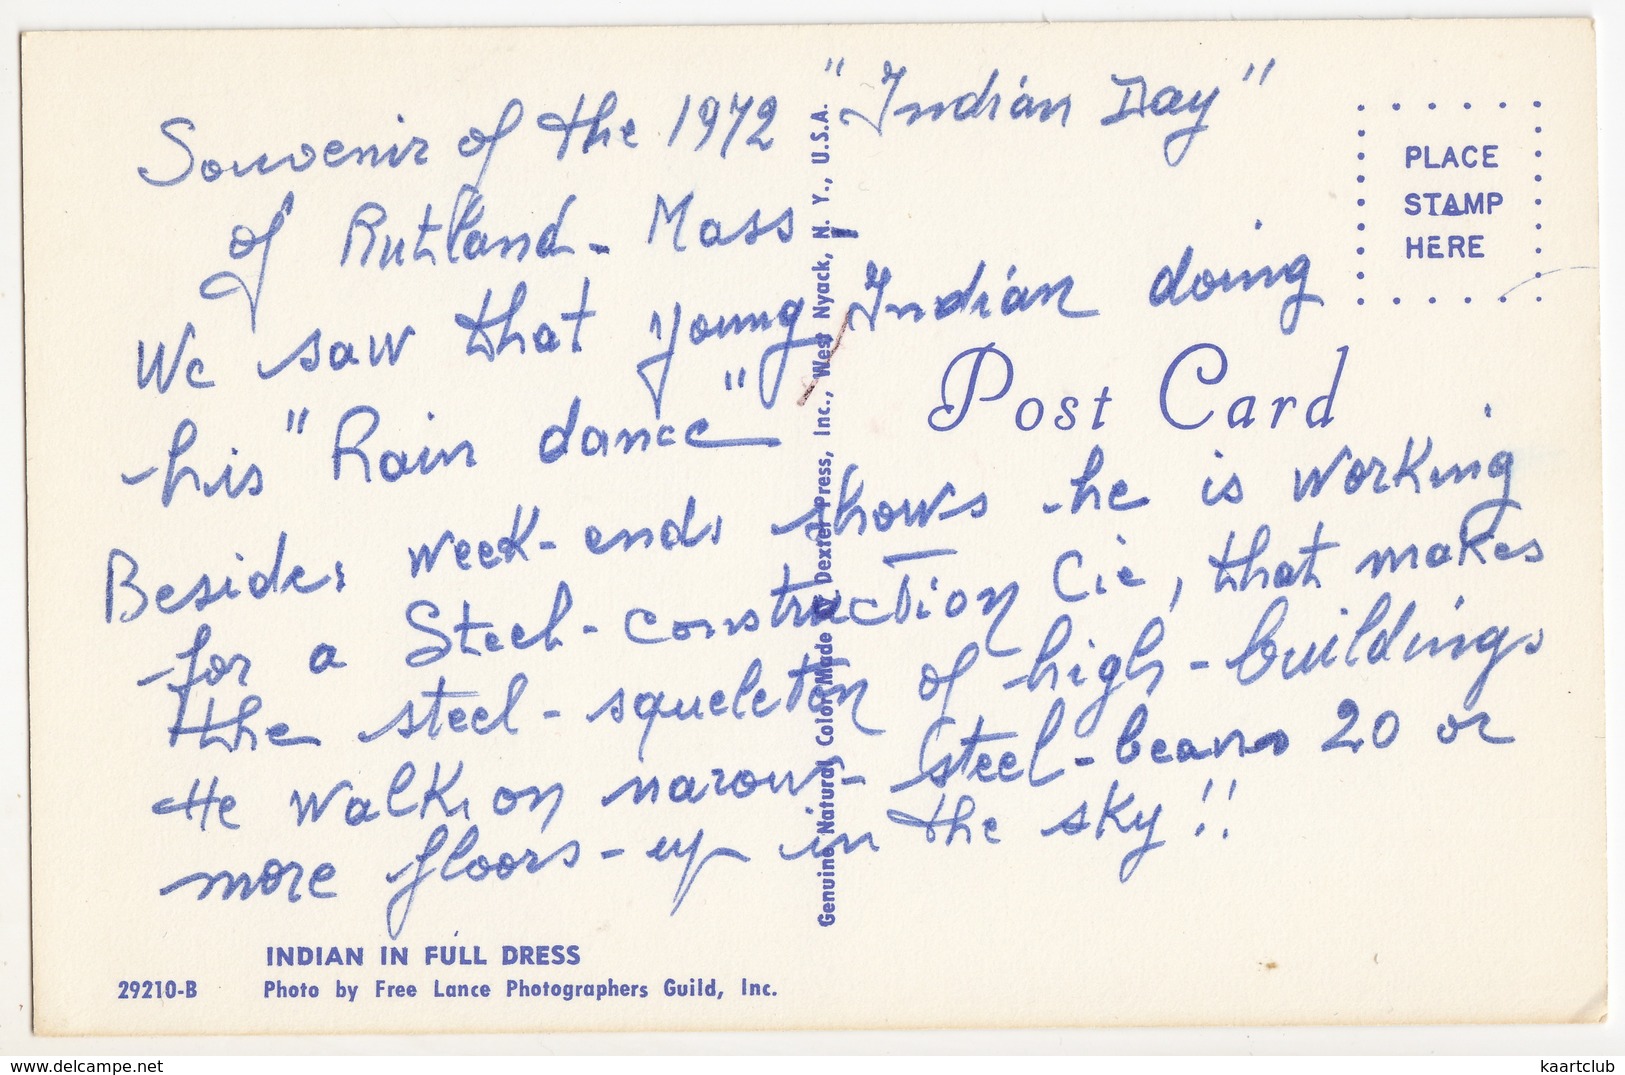 Souvenir of the 1972 "Indian Day"
of Rutland - Mass -
We saw that young Indian doing
his "Rain dance"
Besides week-ends shows he is working
for a Steel-construction Cie, that makes
the steel-squeleton of high-buildings
He walks on narow-steel-beams 20 or
more floors-up in the sky!!
PLACE
STAMP
HERE
Post Card
Genuine Natural Color Made by Dexter Press, Inc., West Nyack, N. Y., U.S.A.
INDIAN IN FULL DRESS
29210-B Photo by Free Lance Photographers Guild, Inc.
https://www.delcampe.net
kaartclub